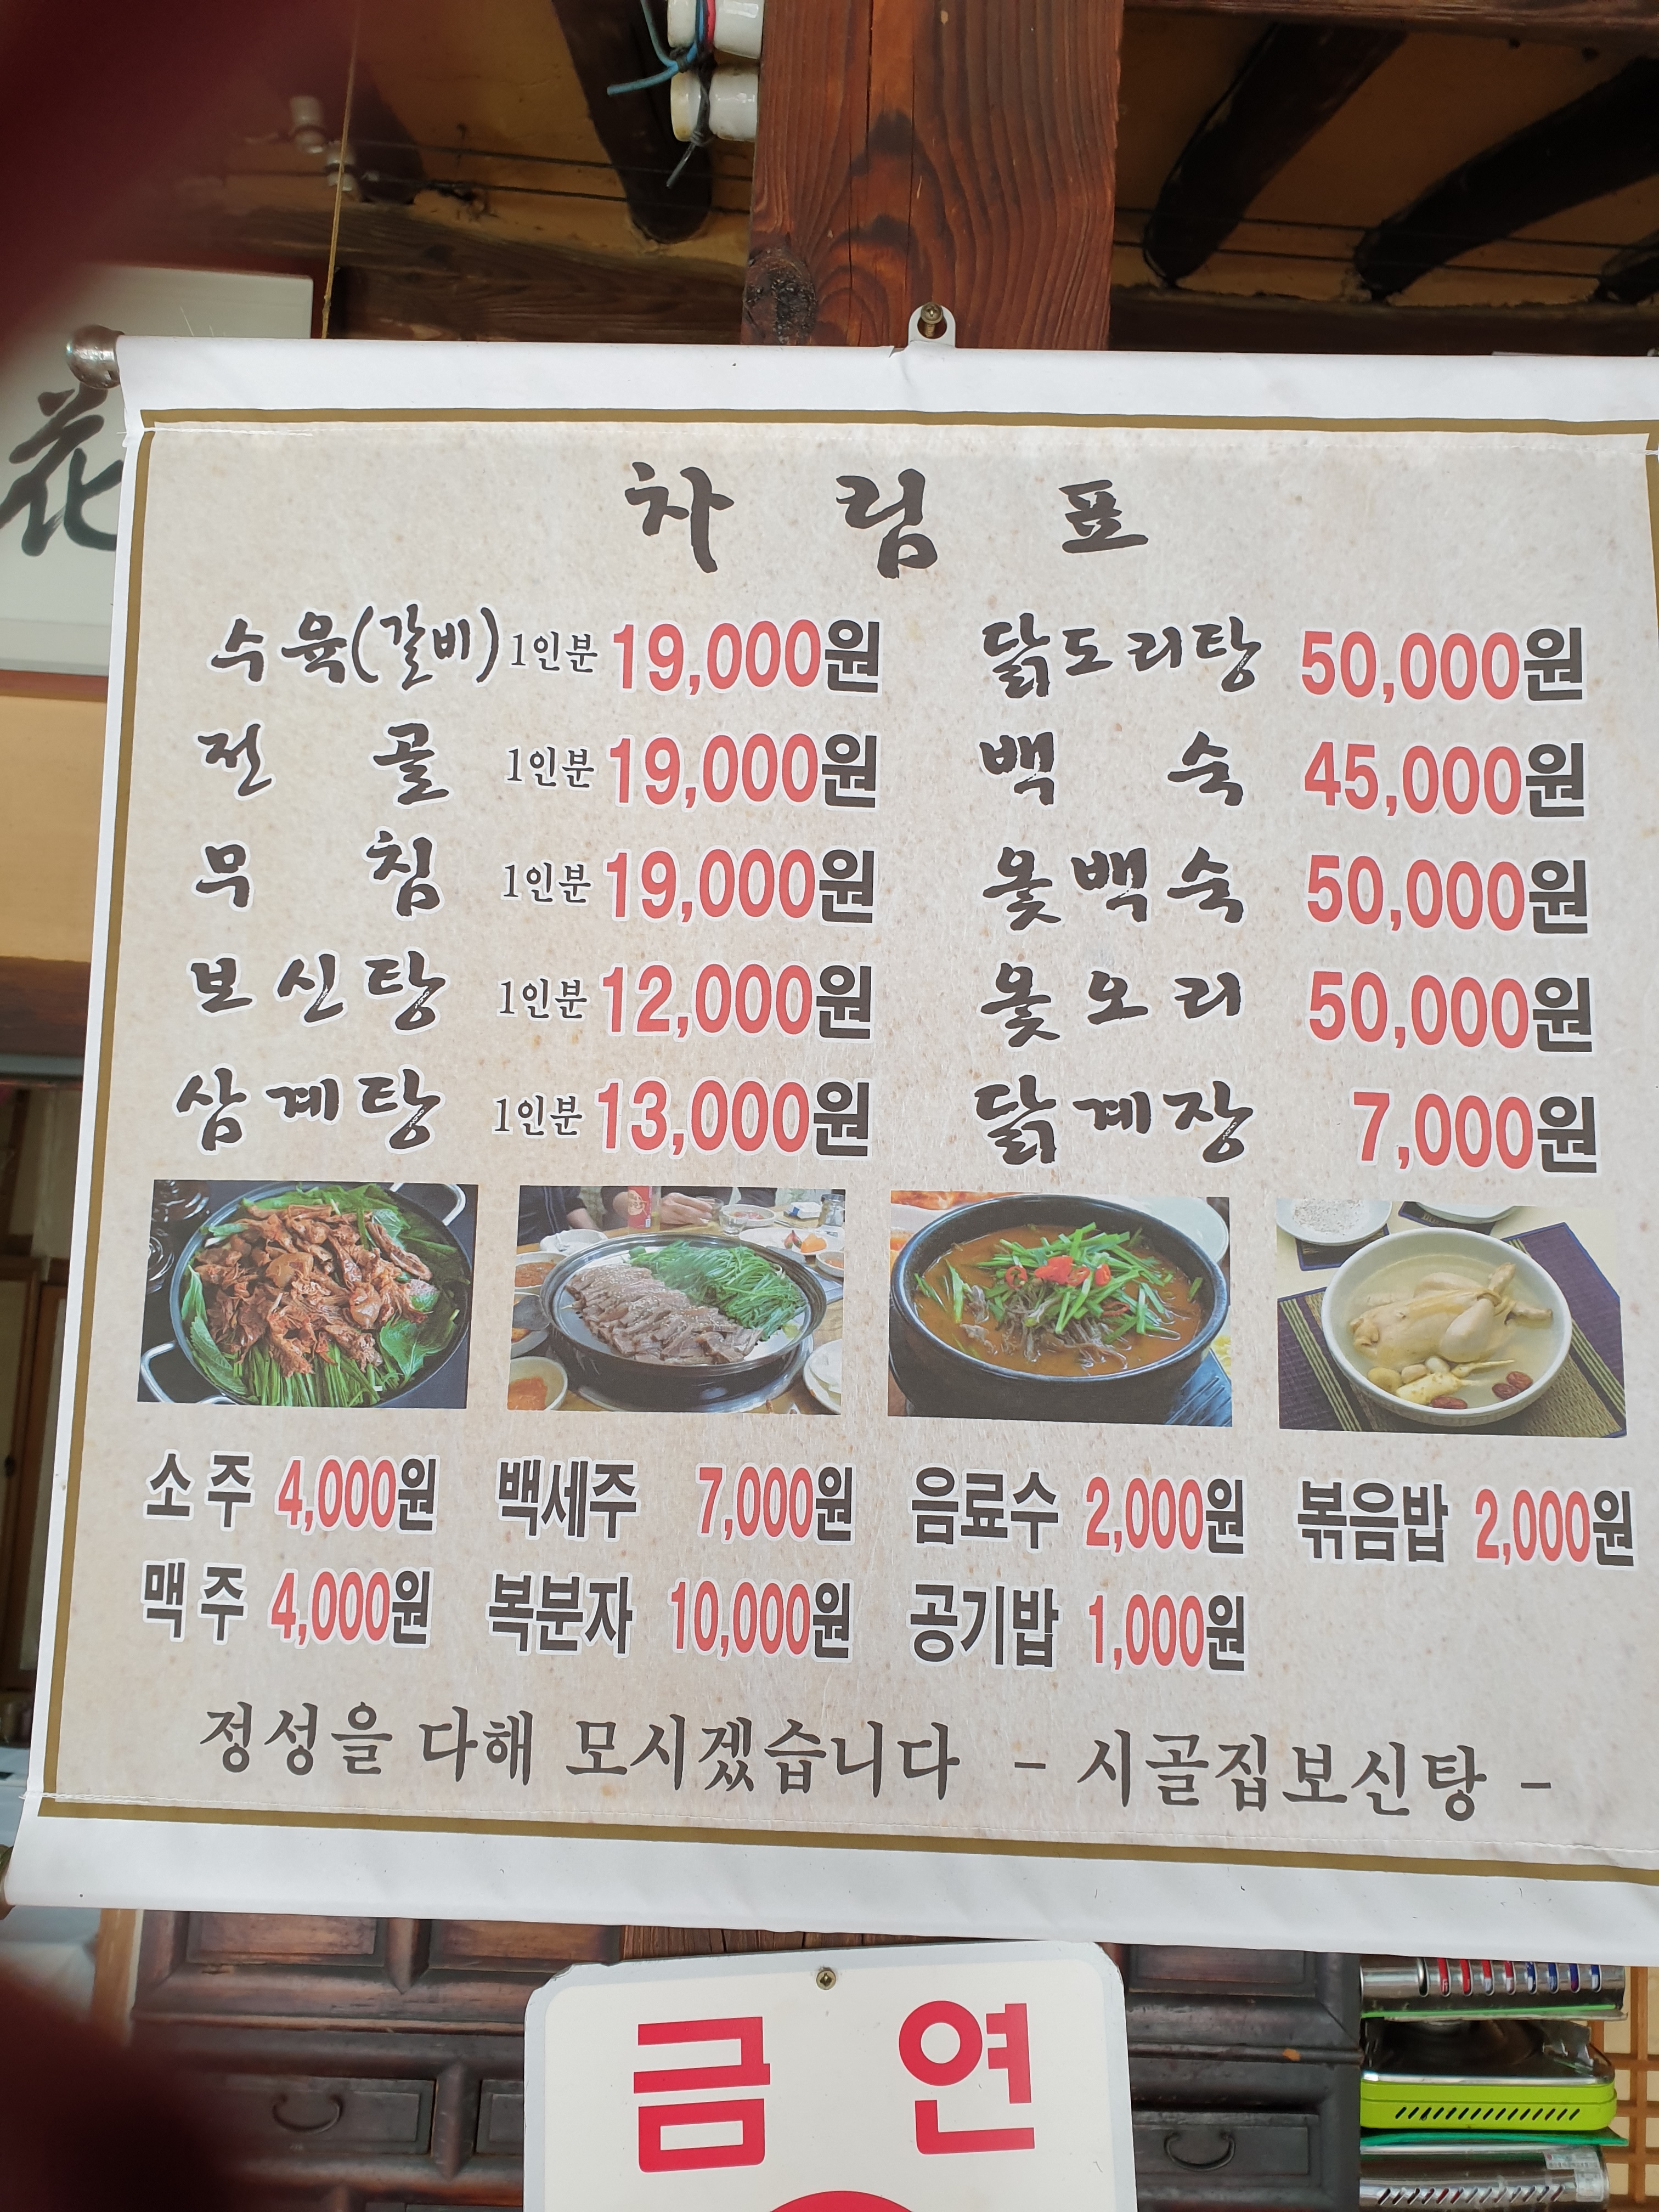 花
차림표
수육(갈비) 1인분 19,000원 닭도리탕 50,000원
전골 1인분 19,000원 백숙 45,000원
무침 1인분 19,000원 옻백숙 50,000원
보신탕 1인분 12,000원 옻오리 50,000원
삼계탕 1인분 13,000원 닭계장 7,000원
소주 4,000원 백세주 7,000원 음료수 2,000원 볶음밥 2,000원
맥주 4,000원 복분자 10,000원 공기밥 1,000원
정성을 다해 모시겠습니다 - 시골집보신탕 -
금연